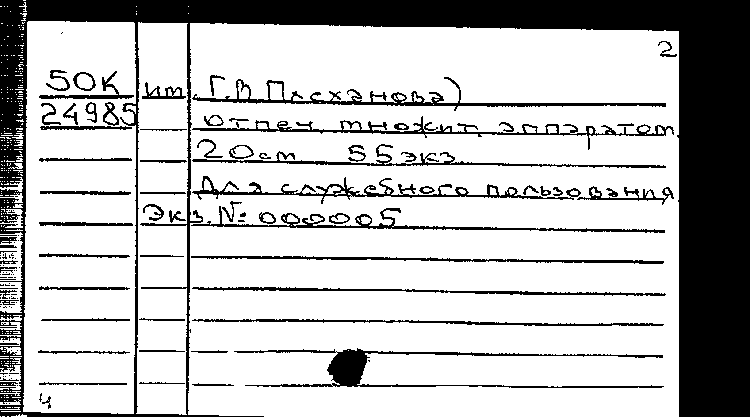 2
50К им. Г.В Плеханова)
24985 отпеч. множит. аппаратом.
20см 55экз.
Для служебного пользования
Экз. № 000005
4